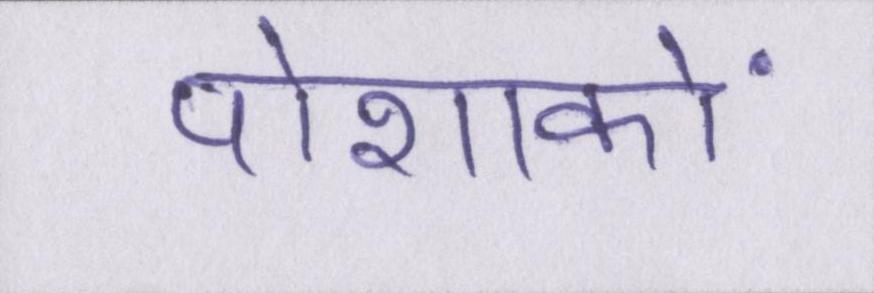 पोशाकों